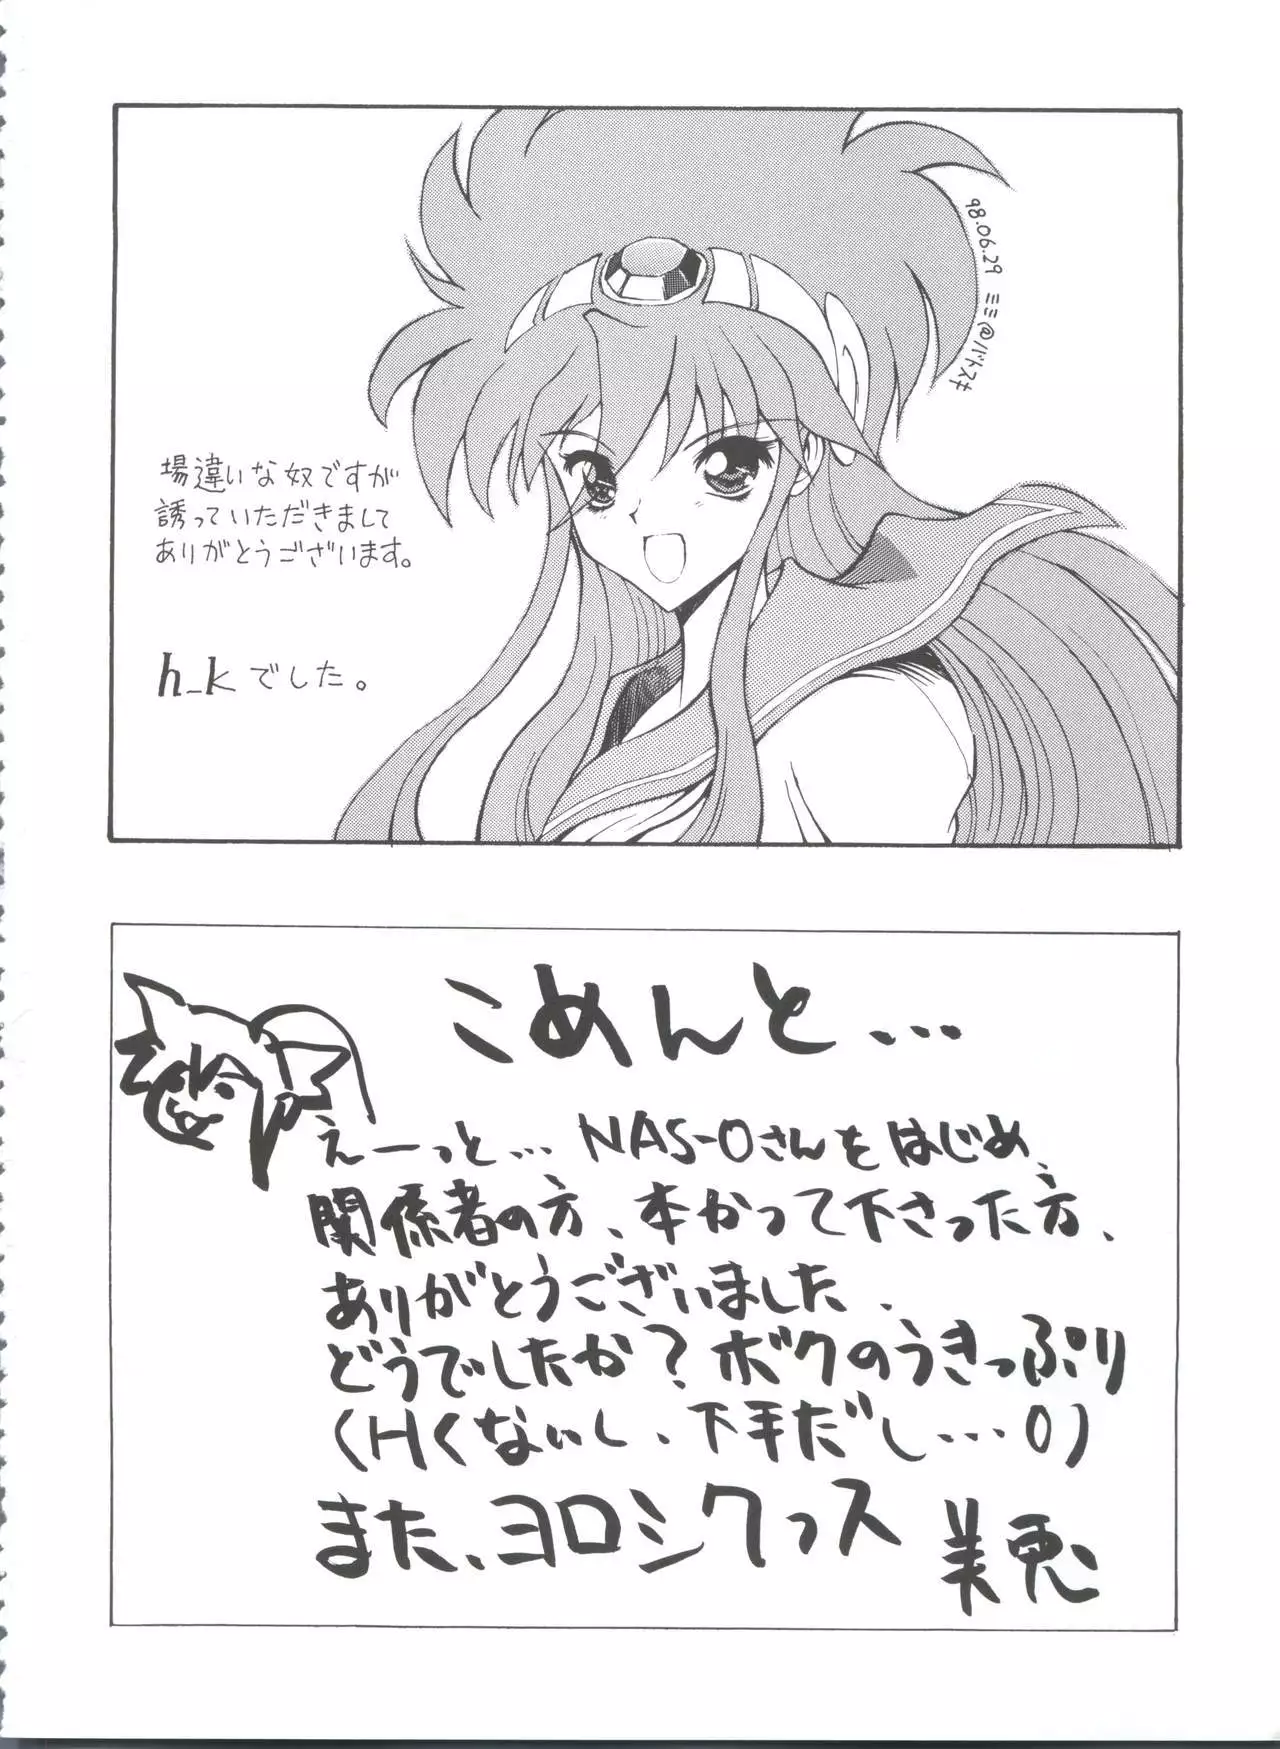 98.06.29 ミミ@バトスキ
場違いな奴ですが
誘っていただきまして
ありがとうございます。
h_kでした。
こめんと…
えーっと… NAS-Oさんをはじめ、
関係者の方、本かって下さった方、
ありがとうございました、
どうでしたか?ボクのうきっぷり
(Hくないし、下手だし…O)
また、ヨロシクっス
美兎